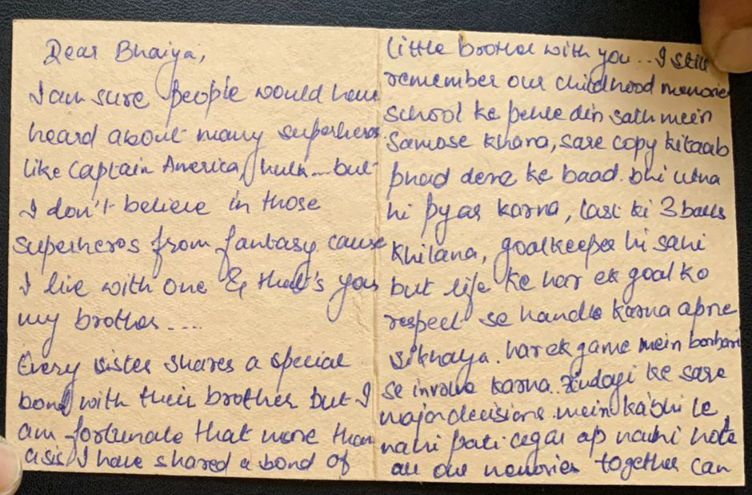 Dear Bhaiya,
I am sure People would have
heard about many superheros
like Captain America, hulk... but
I don't believe in those
superheros from fantasy cause
I live with one & that's you
my brother....
Every sister shares a special
bond with their brother but I
am fortunate that more than
a sis I have shared a bond of
little brother with you... I still
remember our childhood memories
school ke pehle din sath mein
Samose khana, sare copy kitaab
phad dene ke baad bhi utna
hi pyar karna, last ki 3 balls
khilana, goalkeeper hi sahi
but life ke har ek goal ko
respect se handle karna apne
sikhaya. har ek game mein barbari
se involve karna. Zindagi ke sare
major decisions mein kabhi le
nahi pati agar ap nahi hote
all our memories together can